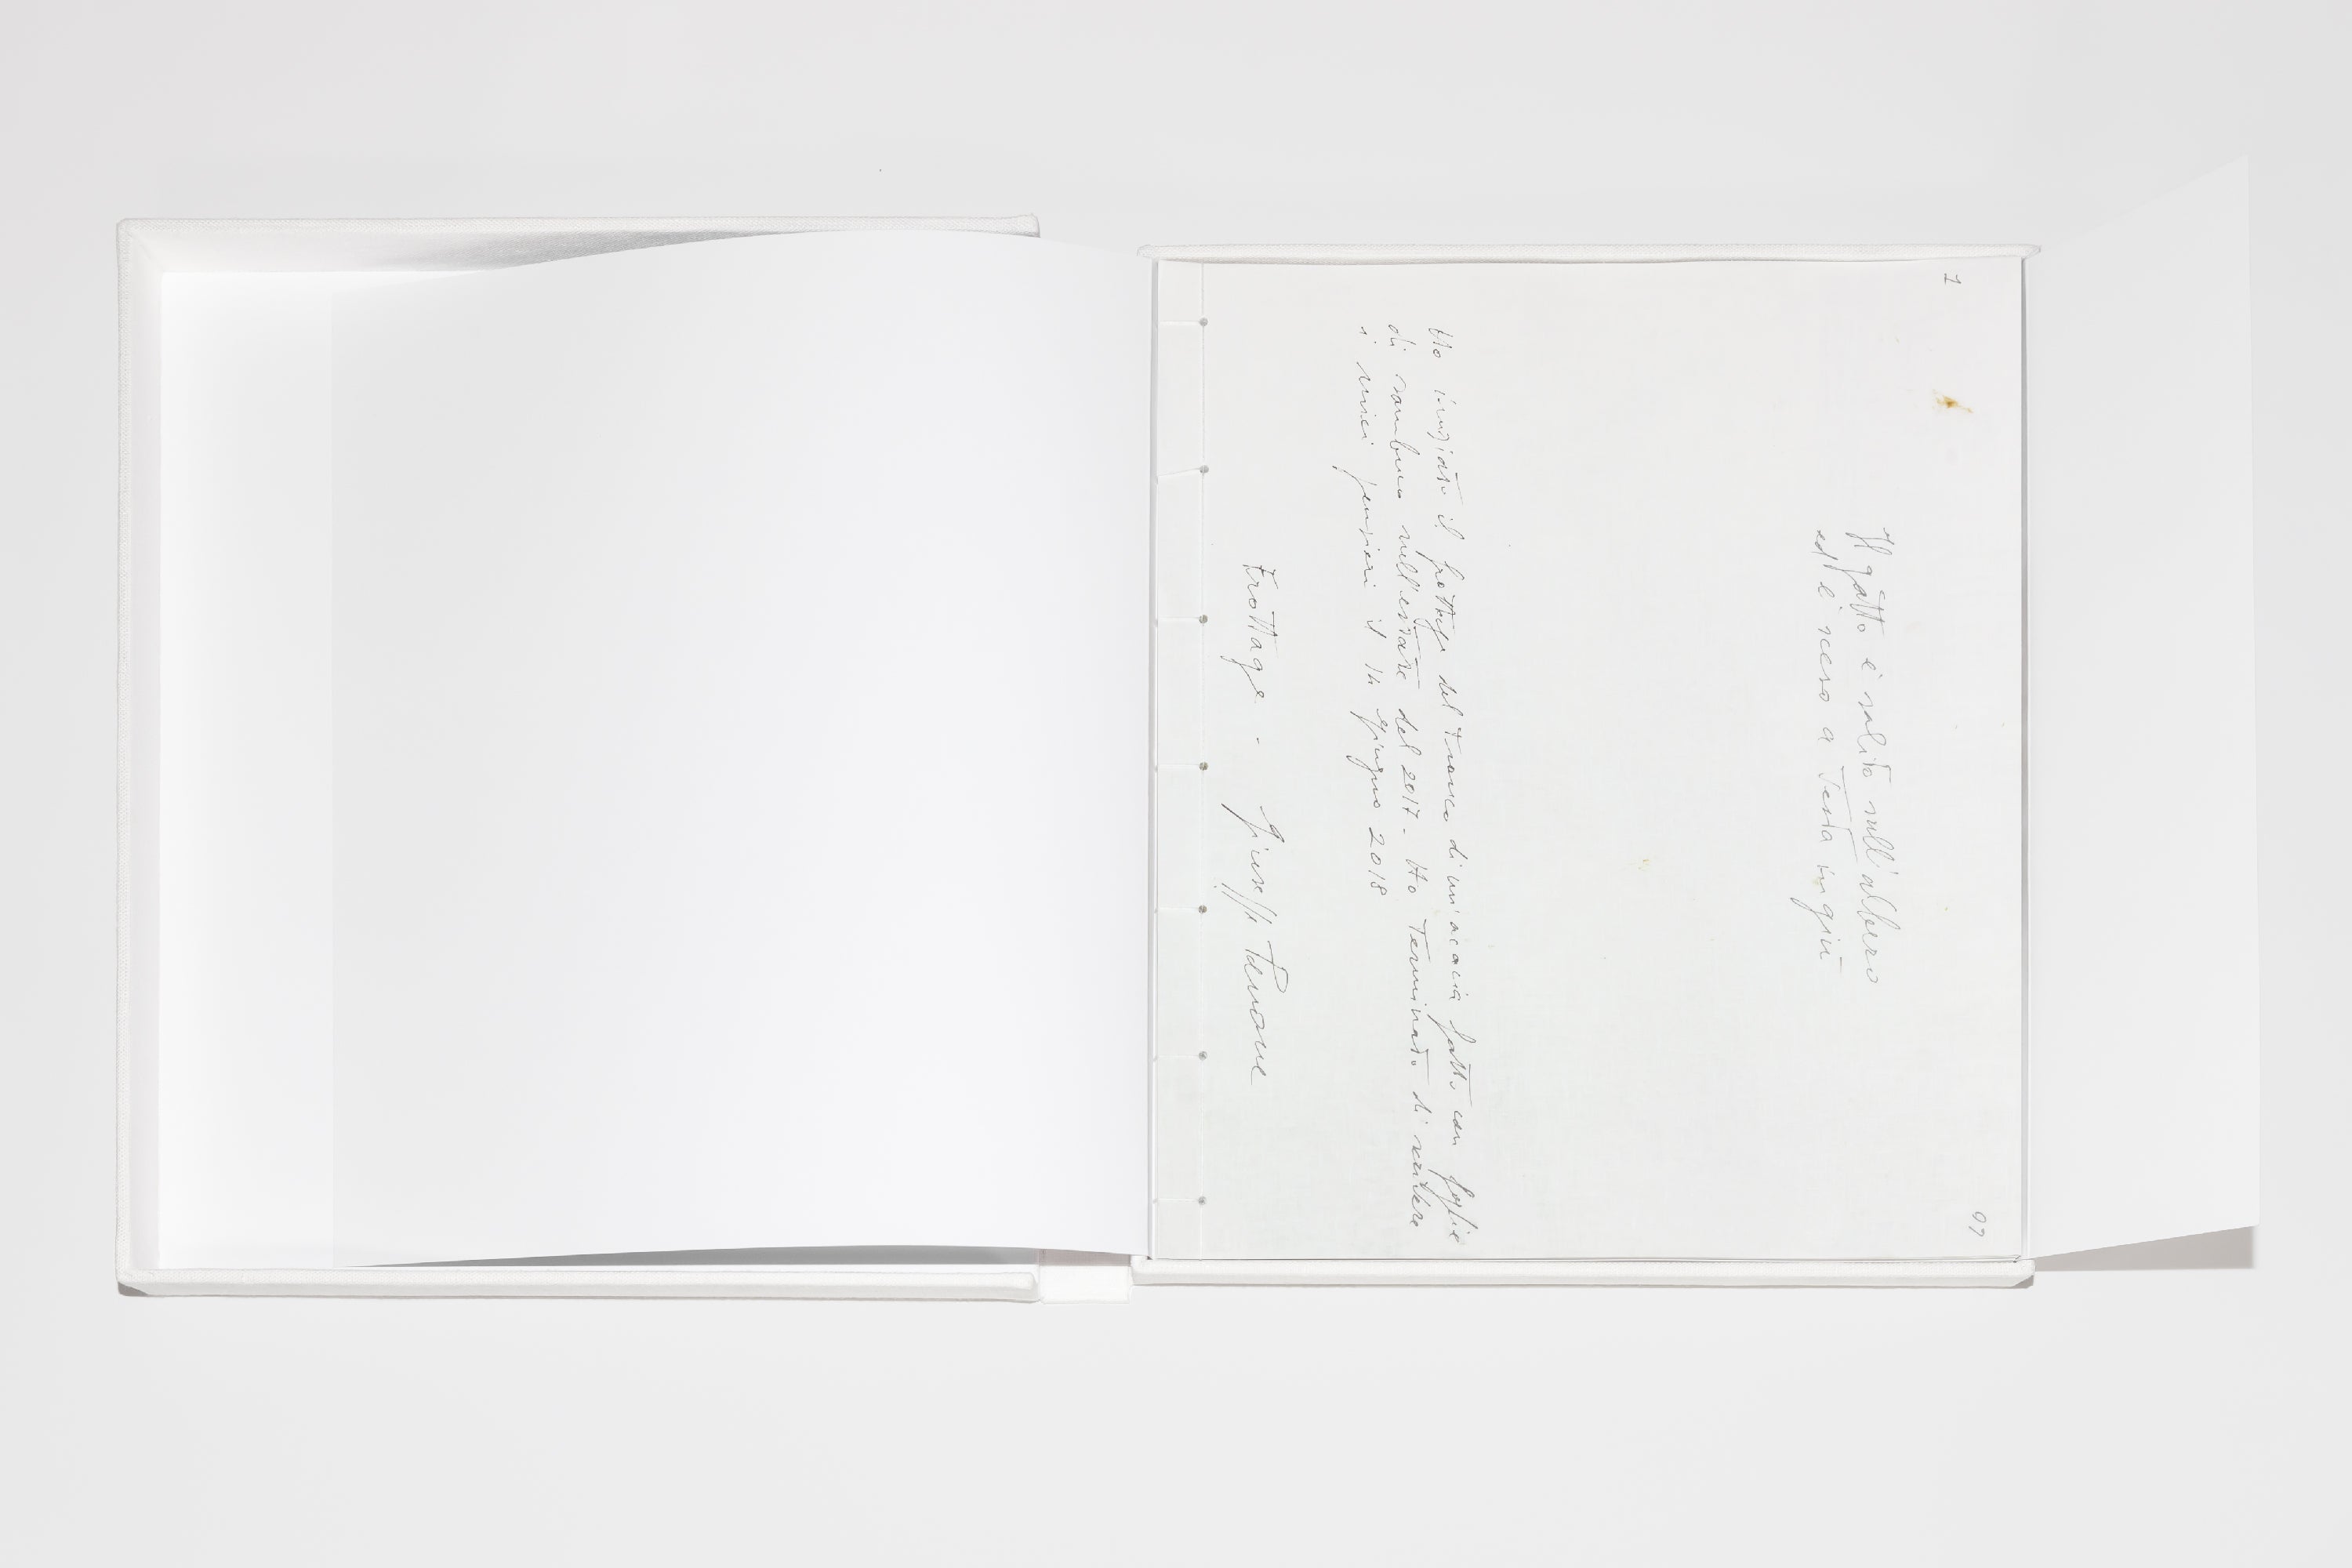 1
Il gatto è salito sull'albero
ed è sceso a testa in giù
Ho iniziato il frottage del tronco di un'acacia fatto con foglie
di sambuco nell'estate del 2017 - Ho terminato di scrivere
i miei pensieri il 14 giugno 2018
Frottage - Giuseppe Penone